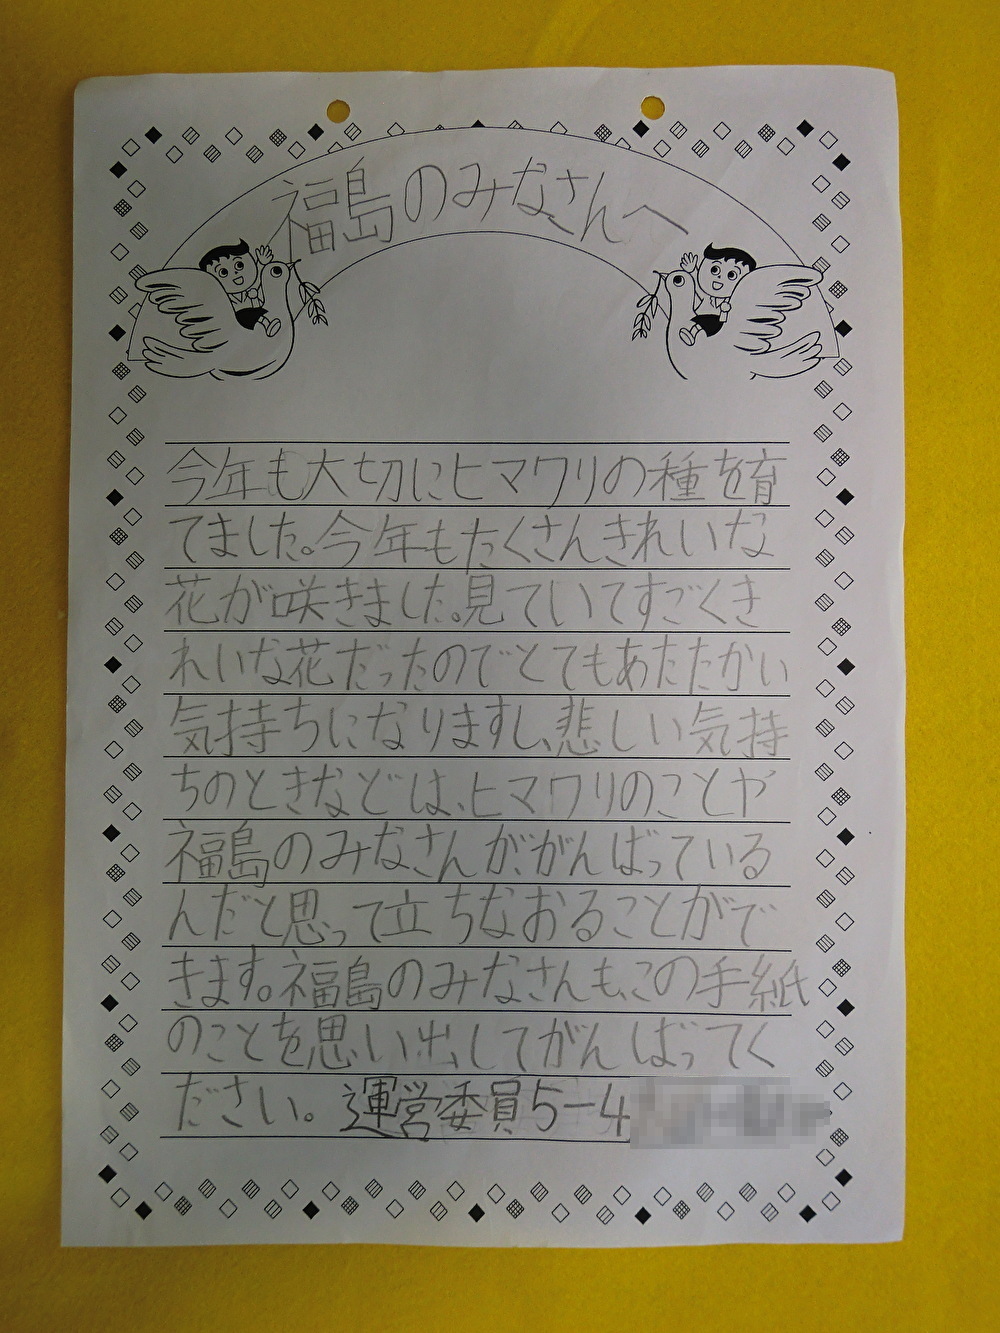 福島のみなさんへ
今年も大切にヒマワリの種を育
てました。今年もたくさんきれいな
花が咲きました。見ていてすごくき
れいな花だったのでとてもあたたかい
気持ちになりますし、悲しい気持
ちのときなどは、ヒマワリのことや
福島のみなさんが、がんばっている
んだと思って立ちなおることがで
きます。福島のみなさんも、この手紙
のことを思い出してがんばってく
ださい。運営委員5-4